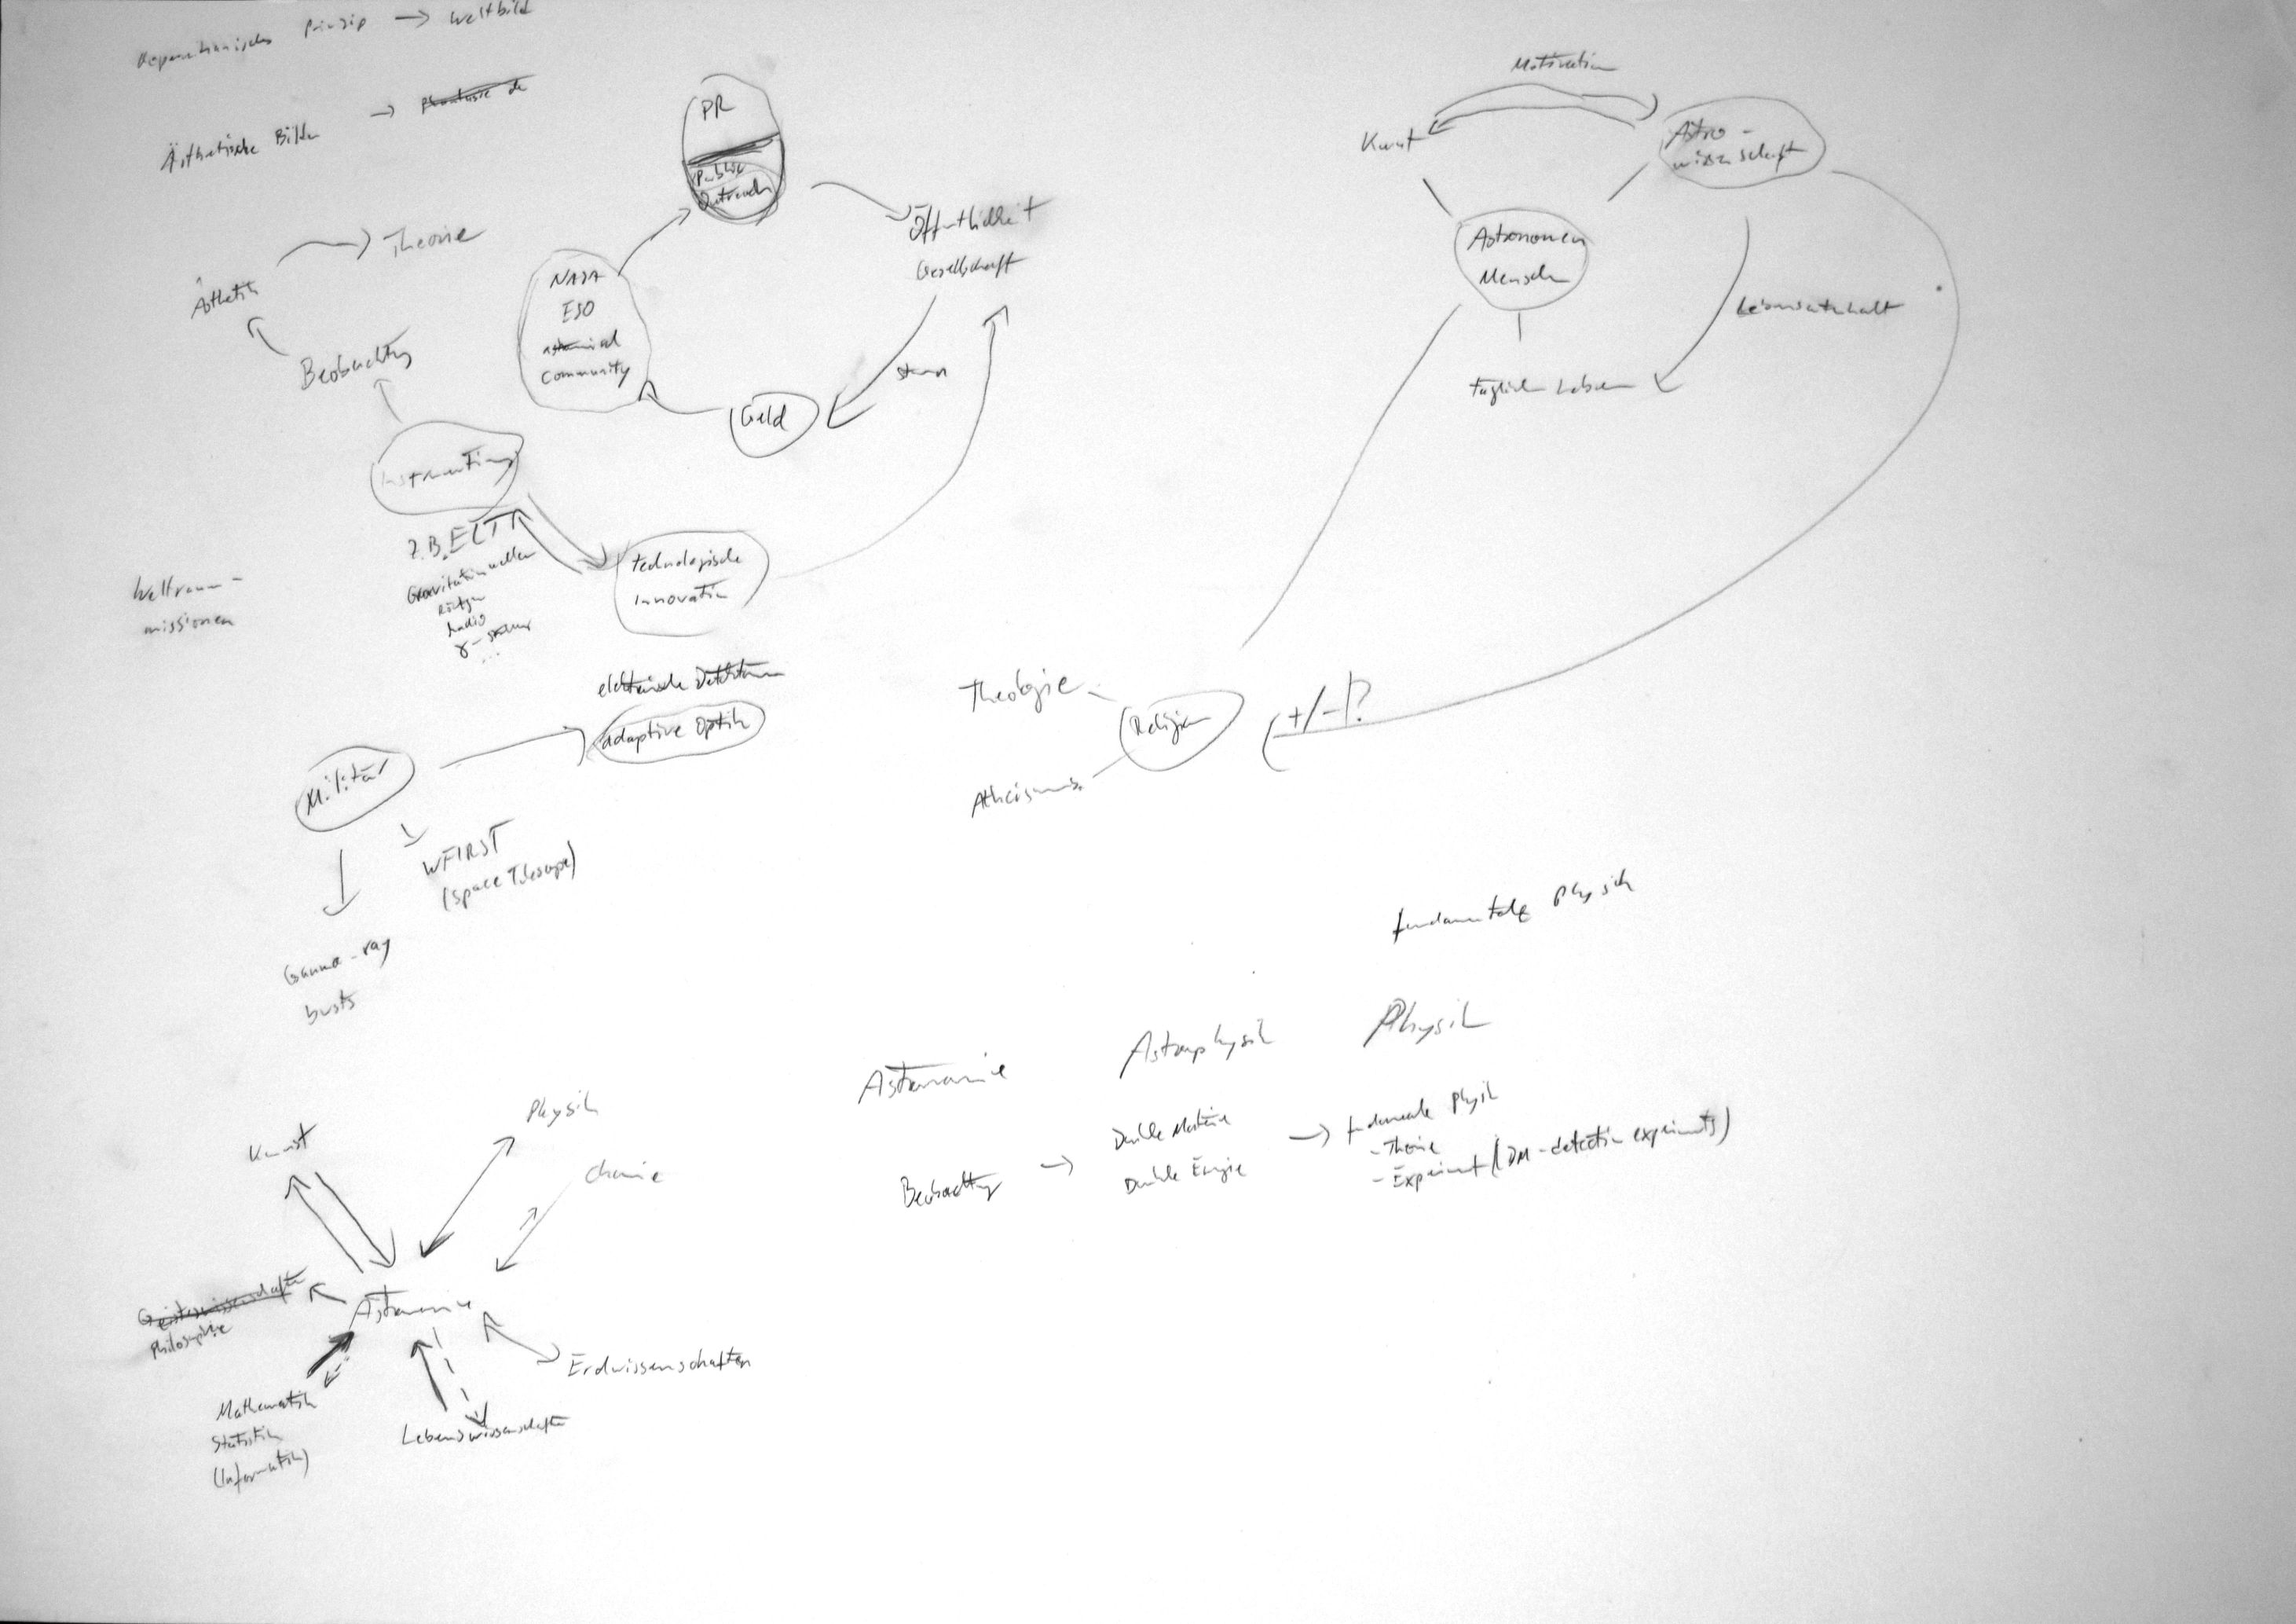 Kopernikanisches Prinzip → Weltbild
Ästhetische Bilder → Phantasie de
PR
Public
Outreach
Öffentlichkeit
Gesellschaft
Theorie
Ästhetik
Beobachtung
NASA
ESO
astronomical
Community
Steuern
Geld
Instrumentierung
z.B. ELT
Gravitationswellen
Röntgen
Radio
γ-
...
technologische
Innovation
Weltraum-
missionen
elektronische Detektoren
adaptive Optik
Militär
WFIRST
(Space Telescope)
Gamma-ray
bursts
Motivation
Kunst
Astro-
wissenschaft
Astronomen
Mensch
Lebensunterhalt
Täglich Leben
Theologie
Religion
+/-/?
Atheismus
fundamentale Physik
Astronomie
Astrophysik
Physik
Beobachtung →
Dunkle Materie
Dunkle Energie
→ fundamentale Physik
- Theorie
- Experiment (DM-detection experiments)
Kunst
Physik
Chemie
Geisteswissenschaften
Philosophie
Astronomie
Erdwissenschaften
Mathematik
Statistik
(Informatik)
Lebenswissenschaften